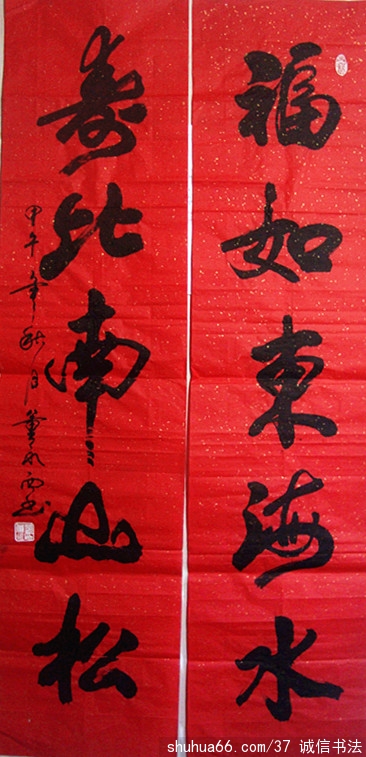 福如東海水
壽比南山松
甲午年秋月董
shuhua66.com/37 诚信书法